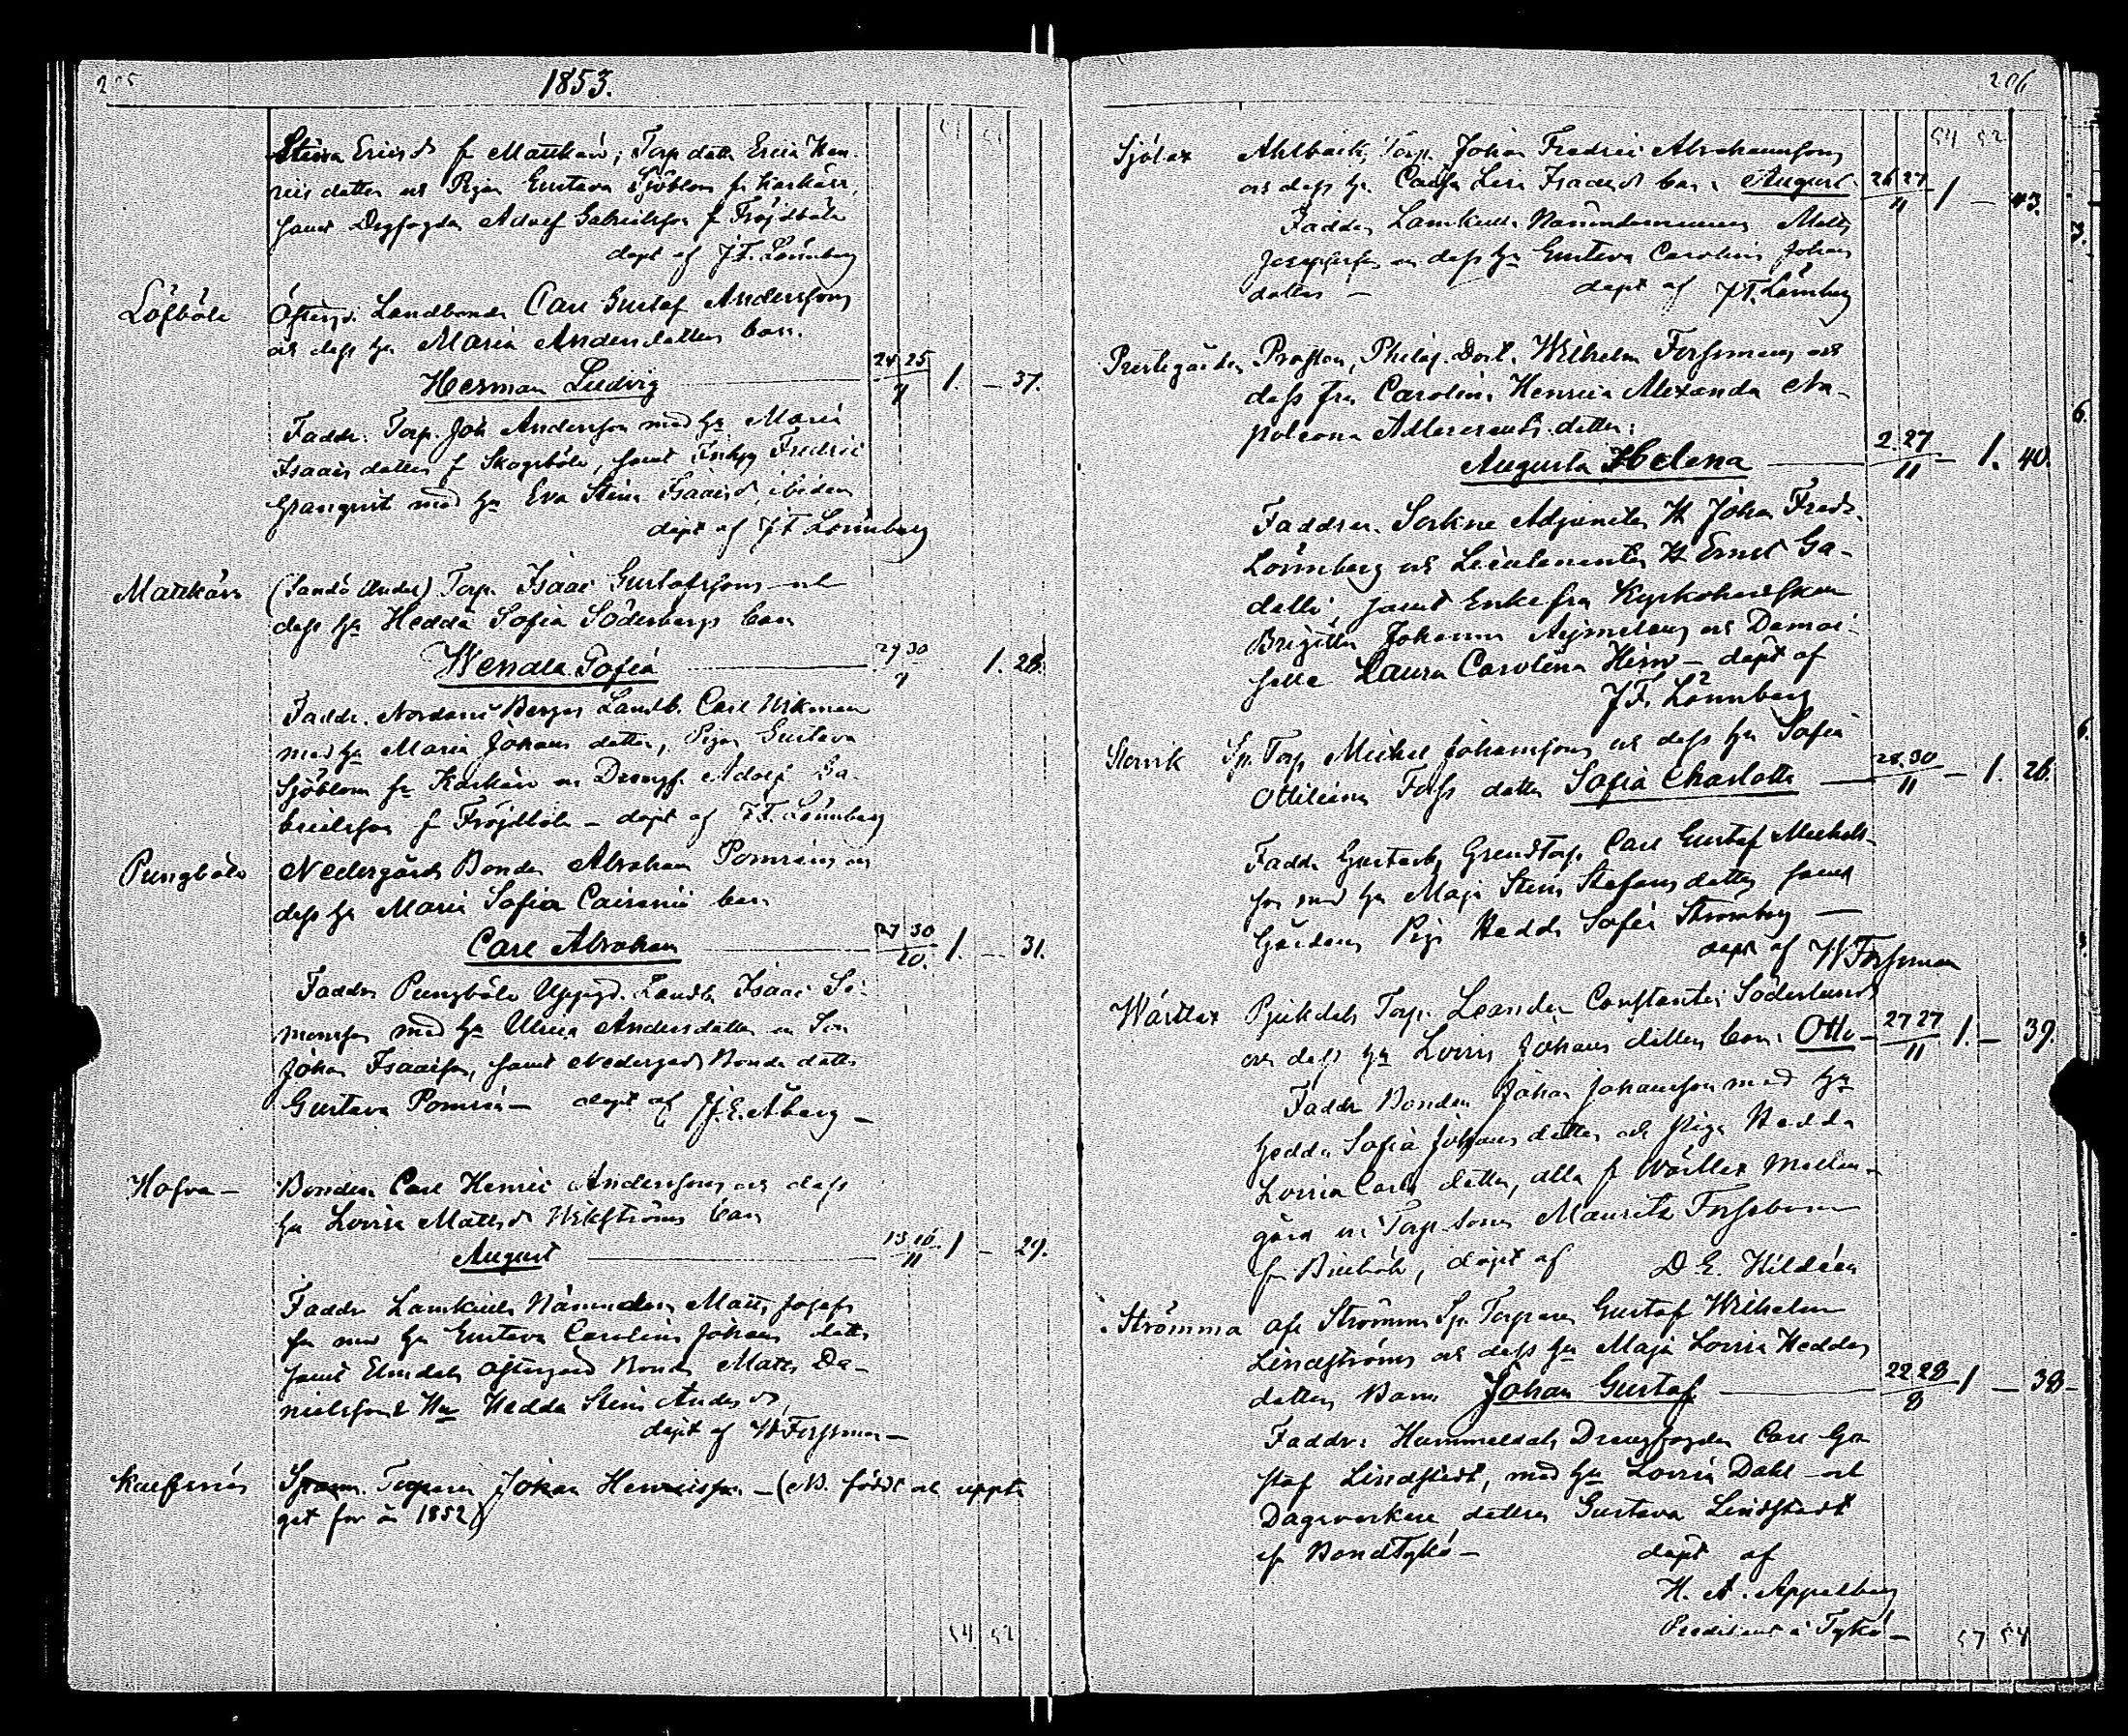 205
1853.
Stina Ericsd fr Mattkärr; Torp. dottr Erica Hen-
ricsdotter och Pigan Gustava Sjöblom fr Karkärr,
samt Drgfogden Adolf Gabrielsson fr Fröjdböle
döpt af J F. Lönnberg
Löfböle Östergd. Landbonde Carl Gustaf Anderssons
och dess Hu Maria Andersdotters barn.
Herman Ludvig 24 25 1. — 37.
Faddr. Torp. Joh Andersson med Hu Maria
Isaacsdotter fr Skogsböle, samt Fredric
Granqvist med Hu Eva Stina Isaacsd, ibidem
döpt af J F Lönnberg
Mattkärr (Sandö Under) Torp. Isaac Gustafssons och
dess Hu Hedda Sofia Söderbergs barn
Wendla Sofia 29 30 1. 28.
Faddr. Nordanå Berges Landb. Carl Wikman
med Hu Maria Johansdotter, Pigan Gustava
Sjöblom fr Karkärr och Drengf. Adolf Ga-
brielsson fr Fröjdböle — döpt af J F. Lönnberg
Pungböle Nedergårds Bonden Abraham Pomréns och
dess Hu Maria Sofia barn
Carl Abraham 27 30 10. 1. — 31.
Faddr Pungböle Uppgd. Landb. Isaac Si-
monsson med Hu Ulrica Andersdotter och Son
Johan Isaacsson, samt Nedergårds Bonde dotter
Gustava Pomrén — döpt af J. E. Åberg —
Hofva — Bonden Carl Henric Anderssons och dess
Hu Lovisa Mattsd Wikströms barn
August 13 16. 11 1 — 29.
Faddr Lamkulla Nämndem. Matts Josefs-
son med Hu Gustava Carolina Johans dotter
samt Elmdals Östergård Bonde Matts Da-
nielsson & Hu Hedda Stina Andersd,
döpt af W Forssman —
Torparen Johan Henricsson — (NB. född och uppta-
get för år 1852)
54 52
206
54 52
Sjölax Ahlbacka, Torp. Johan Fredric Abrahamssons
och dess Hu Cajsa Lisa Isacsds barn August 26 27 11 1 — 43.
Fadder Lamkulla Nämndemannen Matts
Josephsson och dess Hu Gustava Carolina Johans
dotter — döpt af J F. Lönnberg
Prestegården Prosten, Philos. Doct. Wilhelm Forssmans och
dess fru Carolina Henrica Alexandra Na-
poleona Adlercreutz dotter:
Augusta Helena 2. 27 11 — 1. 40.
Faddrar. Sockne Adjuncten H Johan Fredr.
Lönnberg och Lieutenanten H Ernst Ga-
dolli samt Enkefru Kyrkoherdskan
Brigitta Johanna Aejmelaeus och Demoi-
selle Laura Carolina Hirn — döpt af
J F. Lönnberg
Storvik Sp. Torp Michel Johanssons och dess Hu Sofia
Ottiliana Foss dotter Sofia Charlotta 28. 30 11 — 1. 26.
Faddr Gustavsby Grendtorp. Carl Gustaf Michels-
son med Hu Maja Stina Stefansdotter samt
Gårdens Piga Hedda Sofia Strömberg —
döpt af W Forssman
Wårtlax Torp. Leander Constantin Söderlunds
och dess Hu Lovisa Johans dotters barn Otto 27 27 11 1. — 39.
Faddr Bonden Johan Johansson med Hu
Hedda Sofia Johans dotter och Piga Hedda
Lovisa Carls dotter, alla fr Wårtlax Mellan-
gård och Torp. Sonen Mauritz Forsbom
fr Böleböle, döpt af D. E. Hildéen
Strömma afs Strömma Sp. Torparen Gustaf Wilhelm
Lindströms och dess Hu Maja Lovisa Hedda
dotters Barn Johan Gustaf 22 28 8 1 — 38 —
Faddr: Hummeldals Drengfogden Carl Gu-
staf Lindstedt, med Hu Lovisa Dahl och
Dagsverkare dottren Gustava Lindstedt
fr Bondtykö — döpt af
H. A. Appelberg
Predikant i Tykö —
57 54